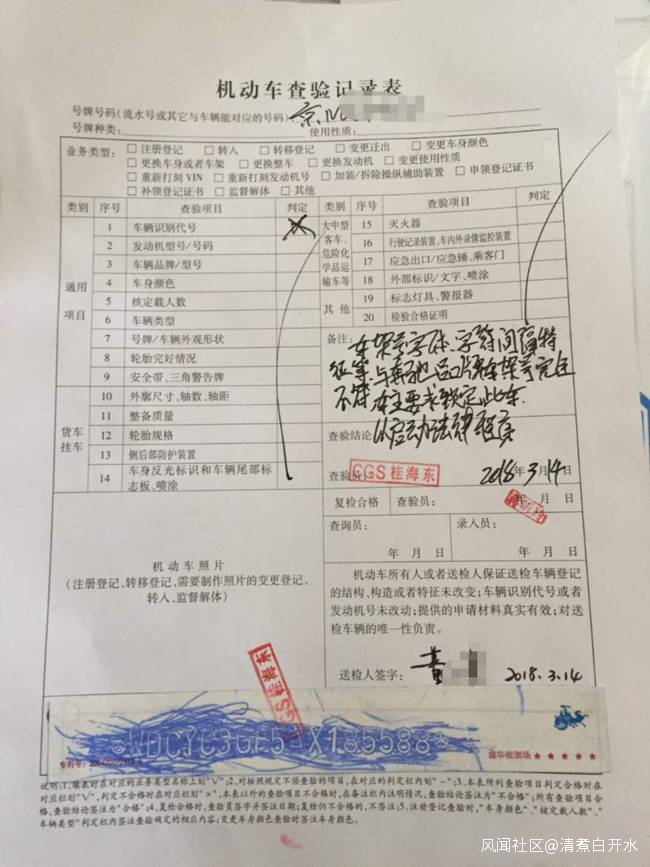 机动车查验记录表
号牌号码(流水号或其它与车辆能对应的号码) 京
号牌种类: 使用性质:
业务类型: □ 注册登记 □ 转入 □ 转移登记 □ 变更迁出 □ 变更车身颜色
□ 更换车身或者车架 □ 更换整车 □ 更换发动机 □ 变更使用性质
□ 重新打刻 VIN □ 重新打刻发动机号 □ 加装/拆除操纵辅助装置 □ 申领登记证书
□ 补领登记证书 □ 监督解体 □ 其他
类别 序号 查验项目 判定 类别 序号 查验项目 判定
通用项目
1 车辆识别代号 ×
2 发动机型号/号码
3 车辆品牌/型号
4 车身颜色
5 核定载人数
6 车辆类型
7 号牌/车辆外观形状
8 轮胎完好情况
9 安全带、三角警告牌
货车挂车
10 外廓尺寸、轴数、轴距
11 整备质量
12 轮胎规格
13 侧后部防护装置
14 车身反光标识和车辆尾部标志板、喷涂
大中型客车、危险化学品运输车等
15 灭火器
16 行驶记录装置、车内外录像监控装置
17 应急出口/应急锤、乘客门
18 外部标识/文字、喷涂
其他
19 标志灯具、警报器
20 检验合格证明
备注: 车架号字体、字符间隔特
征等与奔驰进口车车架号完全
不符 本主要求锁定此车.
查验结论: 以启动法律程序
查验员: CGS 桂海东 2018年3月14日
复检合格 查验员: 年 月 日
查询员: 录入员:
年 月 日 年 月 日
机动车照片
(注册登记、转移登记、需要制作照片的变更登记、
转入、监督解体)
机动车所有人或者送检人保证送检车辆登记
的结构、构造或者特征未改变;车辆识别代号或者
发动机号未改动;提供的申请材料真实有效;对送
检车辆的唯一性负责。
送检人签字: 黄 2018.3.14
CGS 桂海东
专利号:
盛华检测场 ★★★★★
说明:1.填表时在对应的业务类型名称上划"√";2.对按照规定不须查验的项目,在对应的判定栏内划"-";3.本表所列查验项目判定合格时在
对应栏划"√",判定不合格时在对应栏划"×",本表以外的查验项目不合格时,在备注栏内注明情况,查验结论签注为"不合格";所有查验项目合
格,查验结论签注为"合格";4.复检合格时,查验员签字并签注日期;复检仍不合格的,不签注;5.注册登记查验时,"车身颜色"、"核定载人数"、"
车辆类型"判定栏内签注查验确定的相应内容;变更车身颜色查验时签注车身颜色。
风闻社区@清煮白开水